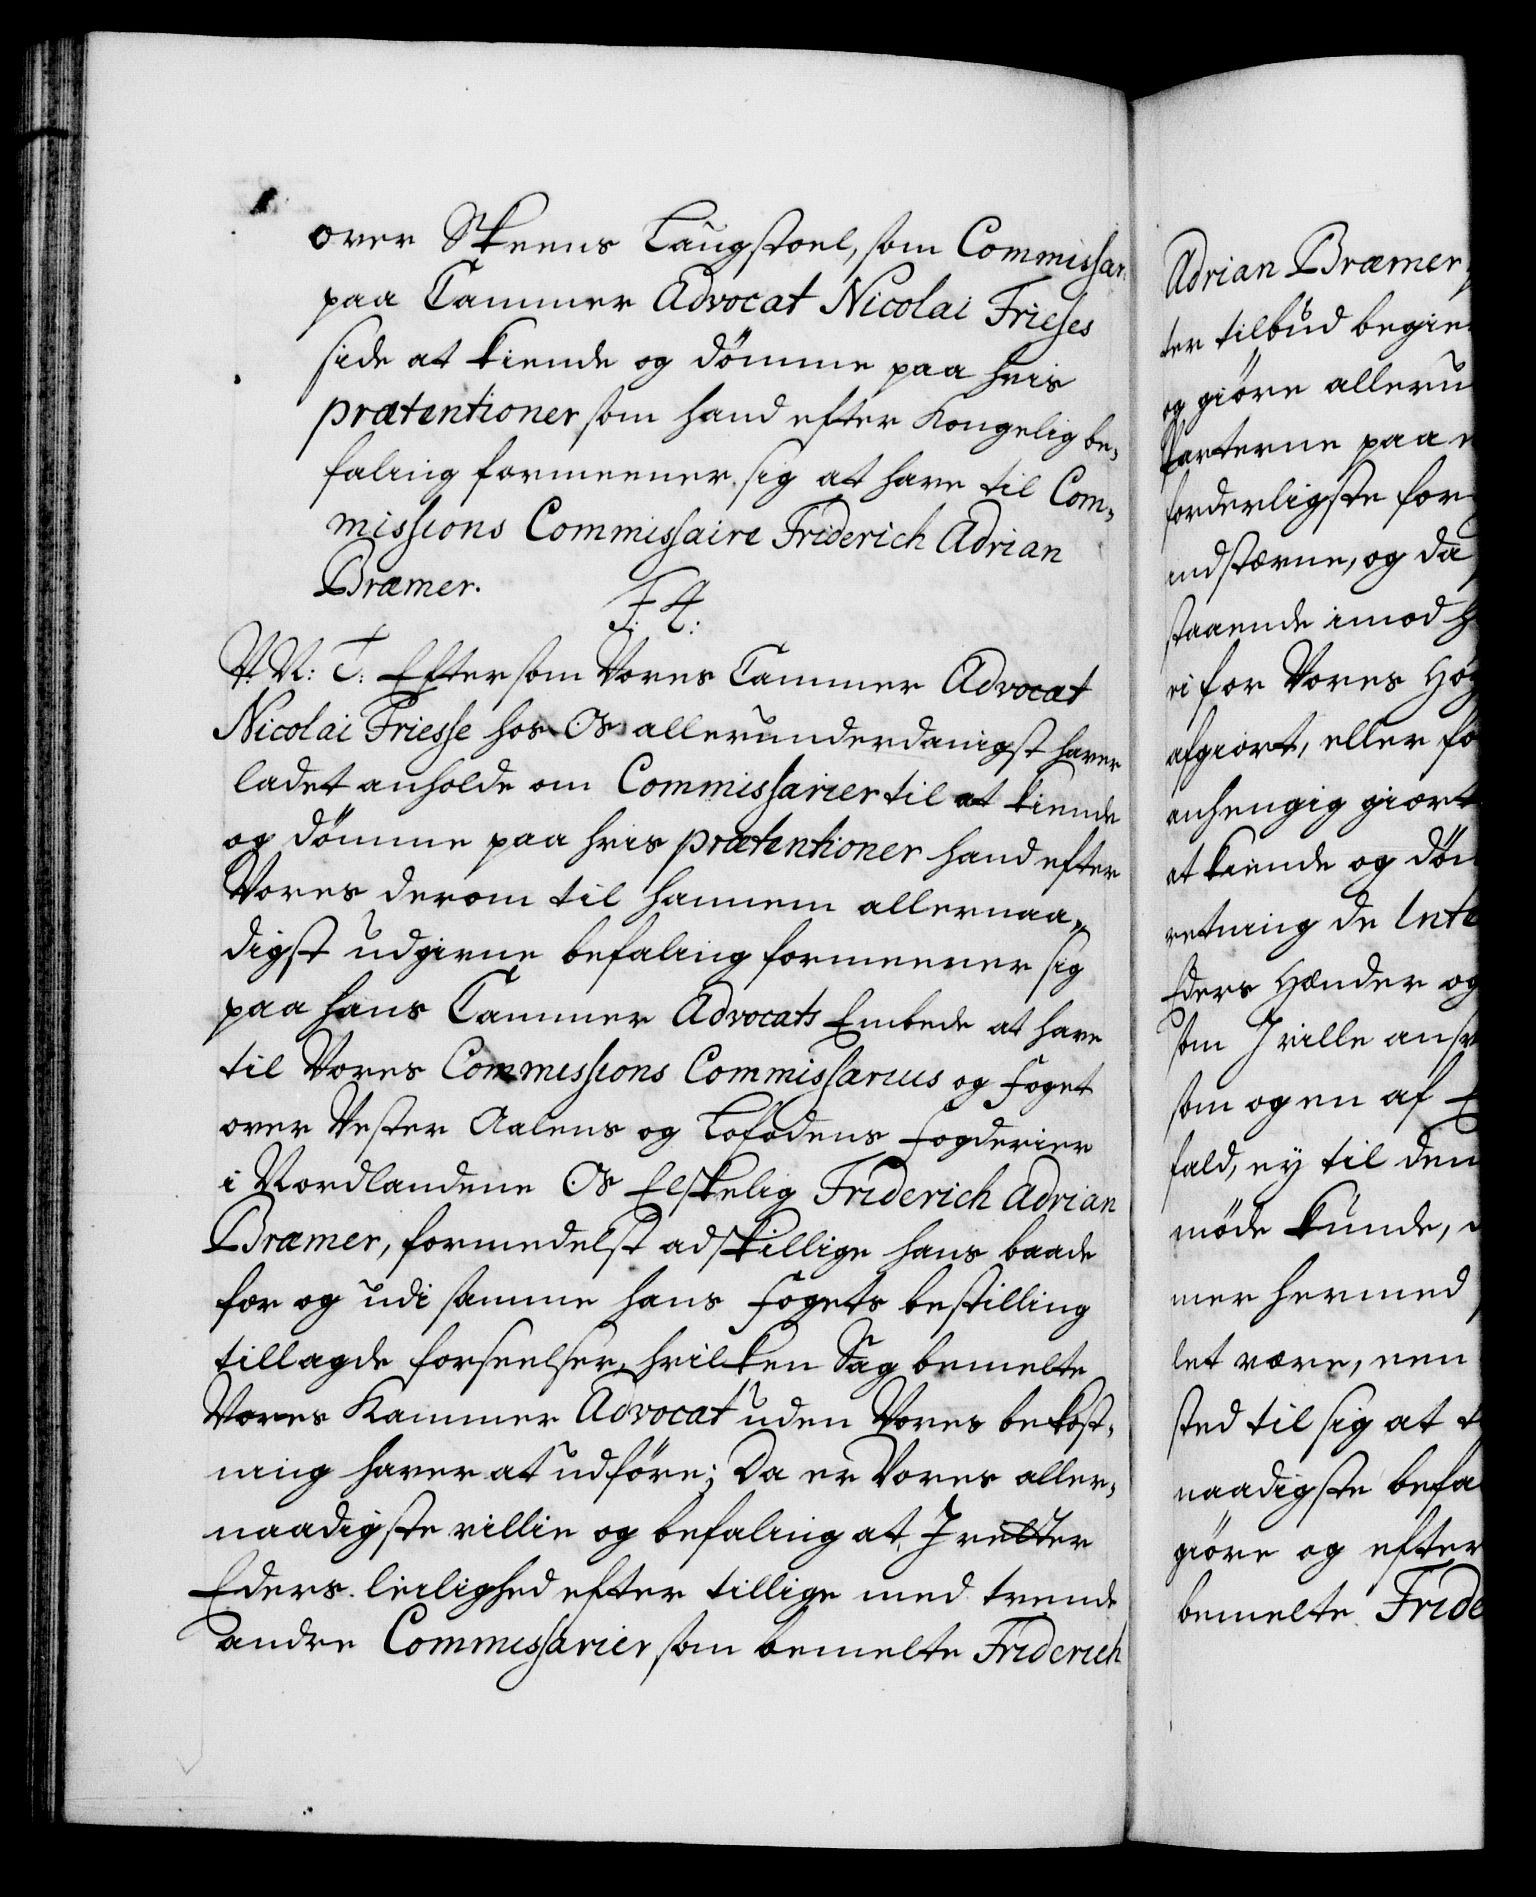 over Skeens Laugstoel, som Commissar.
paa Cammer Advocat Nicolai Frieses
side at kiende og dömme paa hvis
prætentioner som hand efter Kongelig be-
faling formeener sig at have til Com-
missions Commissaire Friderich Adrian
Bræmer.
F. 4:
V. N: T: Eftersom Vores Cammer Advocat
Nicolai Friesse hos Os allerunderdanigst haver
ladet anholde om Commissarier til at kiende
og dömme paa hvis prætentioner hand efter
Vores derom til hannem allernaa-
digst udgivne befaling formeener sig
paa hans Cammer Advocats Embede at have
til Vores Commissions Commissarius og Foget
over Vester Aalens og Lofodens Fogderier
i Nordlandene Os Elskelig Friderich Adrian
Bræmer, formedelst adskillige hans baade
for og udi samme hans Fogets bestilling
tillagde forseelser, hvilken Sag bemelte
Vores Kammer Advocat uden Vores bekost-
ning haver at udföre; Da er Vores aller-
naadigste villie og befaling at I retter
Eders leilighed efter tillige med trende
andre Commissarier som bemelte Friderich
Adrian Bræmer
ter tilbud begie
og giöre alleru
Parterne paa
forderligste for
indstevne, og da
staaende imod H
vi for Vores Höy
afgiort, eller fo
anhengig giort
at kiende og döm
retning de Inte
Eders Hænder og
som I ville ansv
som og en af E
fald, ey til den
möde kunde,
mer hermed
let være, een
sted til sig at t
naadigste befa
giöre og efter
bemelte Fride